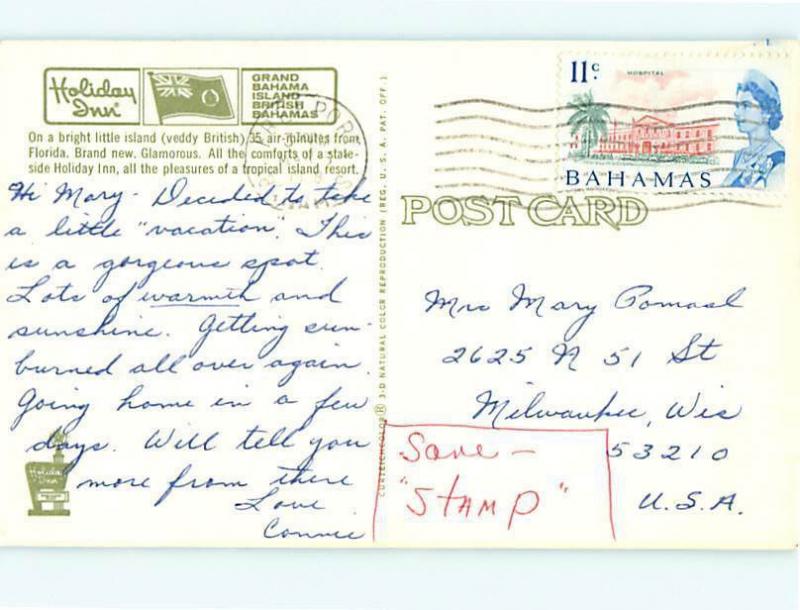 Holiday
Inn®
GRAND
BAHAMA
ISLAND
BRITISH
BAHAMAS
On a bright little island (veddy British) 35 air-minutes from
Florida. Brand new. Glamorous. All the comforts of a state-
side Holiday Inn, all the pleasures of a tropical island resort.
Hi Mary - Decided to take
a little "vacation". This
is a gorgeous spot.
Lots of warmth and
sunshine. Getting sun-
burned all over again.
Going home in a few
days. Will tell you
more from there
Love
Connie
Holiday
Inn
CURTEICHCOLOR® 3-D NATURAL COLOR REPRODUCTION (REG. U. S. A. PAT. OFF.)
11c.
HOSPITAL
BAHAMAS
POST CARD
Mrs Mary Pomasl
2625 N 51 St
Milwaukee, Wis
53210
U.S.A.
Save -
"STAMP"